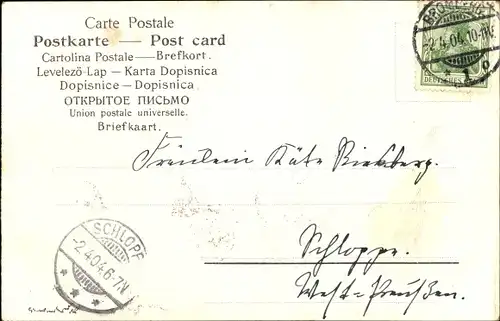 Carte Postale
Postkarte — Post card
Cartolina Postale — Brefkort.
Levelező-Lap — Karta Dopisnica
Dopisnice — Dopisnica.
ОТКРЫТОЕ ПИСЬМО
Union postale universelle.
Briefkaart.
BROMBERG
-2.4.04.10-11V.
* 1 o
DEUTSCHES
Fräulein Käte
Schloppe.
West=Preußen.
SCHLOPPE
-2.4.04.6-7N
* * *